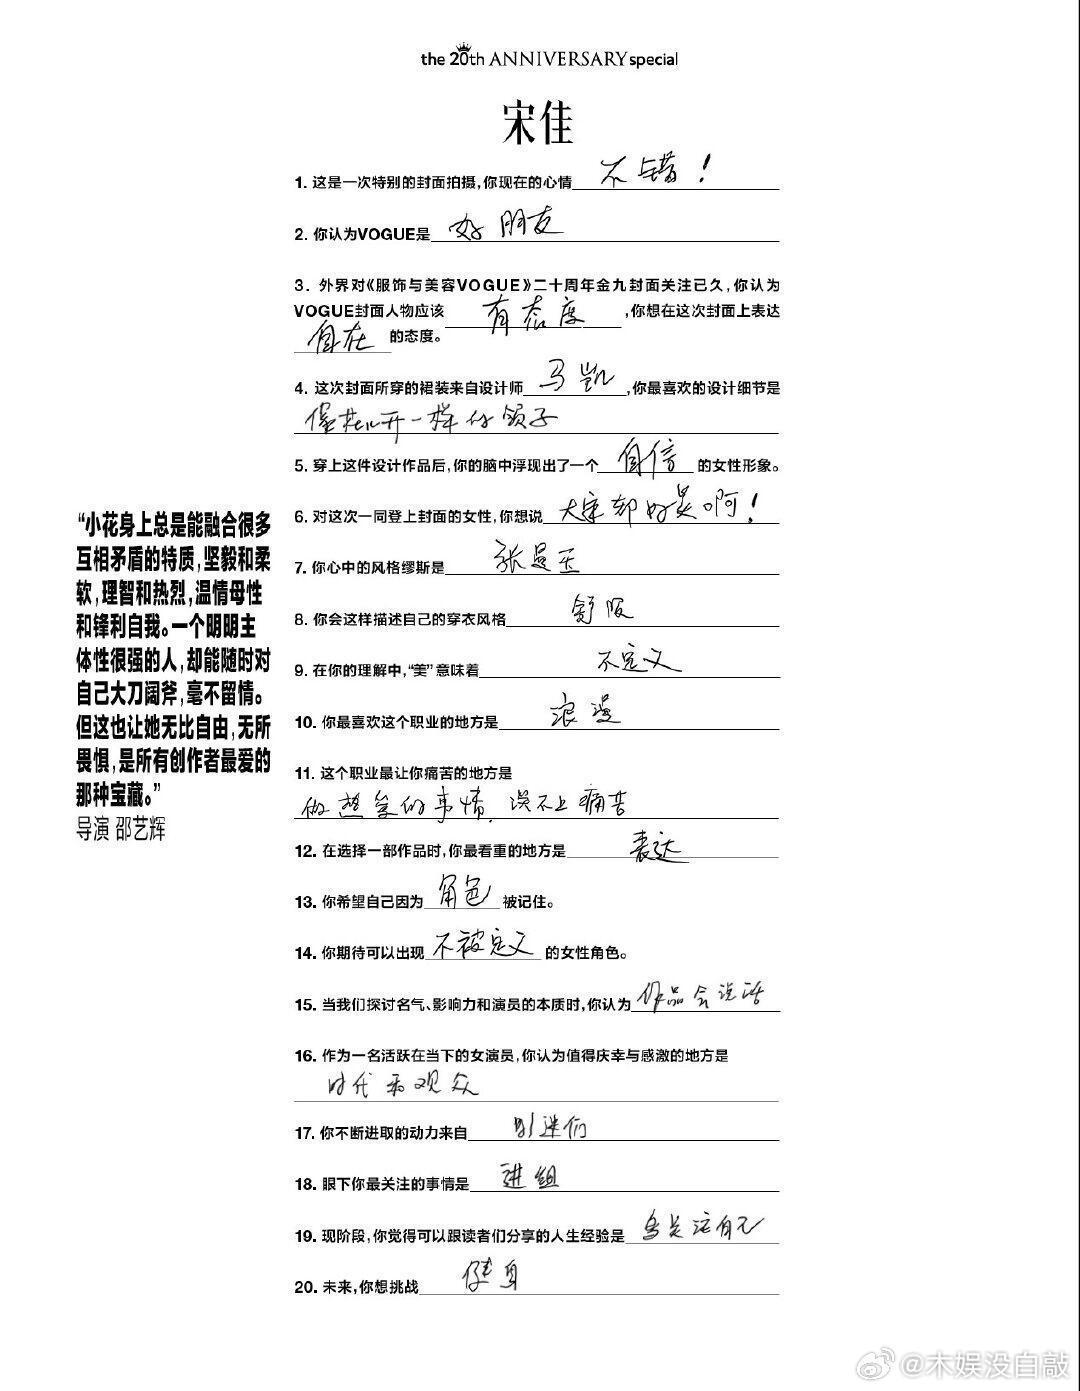 the 20th ANNIVERSARY special
宋佳
1. 这是一次特别的封面拍摄,你现在的心情 不错！
2. 你认为VOGUE是 好朋友
3. 外界对《服饰与美容VOGUE》二十周年金九封面关注已久,你认为
VOGUE封面人物应该 有态度 ,你想在这次封面上表达
自在 的态度。
4. 这次封面所穿的裙装来自设计师 马凯 ,你最喜欢的设计细节是
像花儿开一样的领子
5. 穿上这件设计作品后,你的脑中浮现出了一个 自信 的女性形象。
6. 对这次一同登上封面的女性,你想说 大家都好美啊！
7. 你心中的风格缪斯是 张曼玉
8. 你会这样描述自己的穿衣风格 舒服
9. 在你的理解中,“美”意味着 不定义
10. 你最喜欢这个职业的地方是 浪漫
11. 这个职业最让你痛苦的地方是
做热爱的事情,谈不上痛苦
12. 在选择一部作品时,你最看重的地方是 表达
13. 你希望自己因为 角色 被记住。
14. 你期待可以出现 不被定义 的女性角色。
15. 当我们探讨名气、影响力和演员的本质时,你认为 作品会说话
16. 作为一名活跃在当下的女演员,你认为值得庆幸与感激的地方是
时代和观众
17. 你不断进取的动力来自 影迷们
18. 眼下你最关注的事情是 进组
19. 现阶段,你觉得可以跟读者们分享的人生经验是 多关注自己
20. 未来,你想挑战 健身
“小花身上总是能融合很多
互相矛盾的特质,坚毅和柔
软,理智和热烈,温情母性
和锋利自我。一个明明主
体性很强的人,却能随时对
自己大刀阔斧,毫不留情。
但这也让她无比自由,无所
畏惧,是所有创作者最爱的
那种宝藏。”
导演 邵艺辉
@木娱没白敲